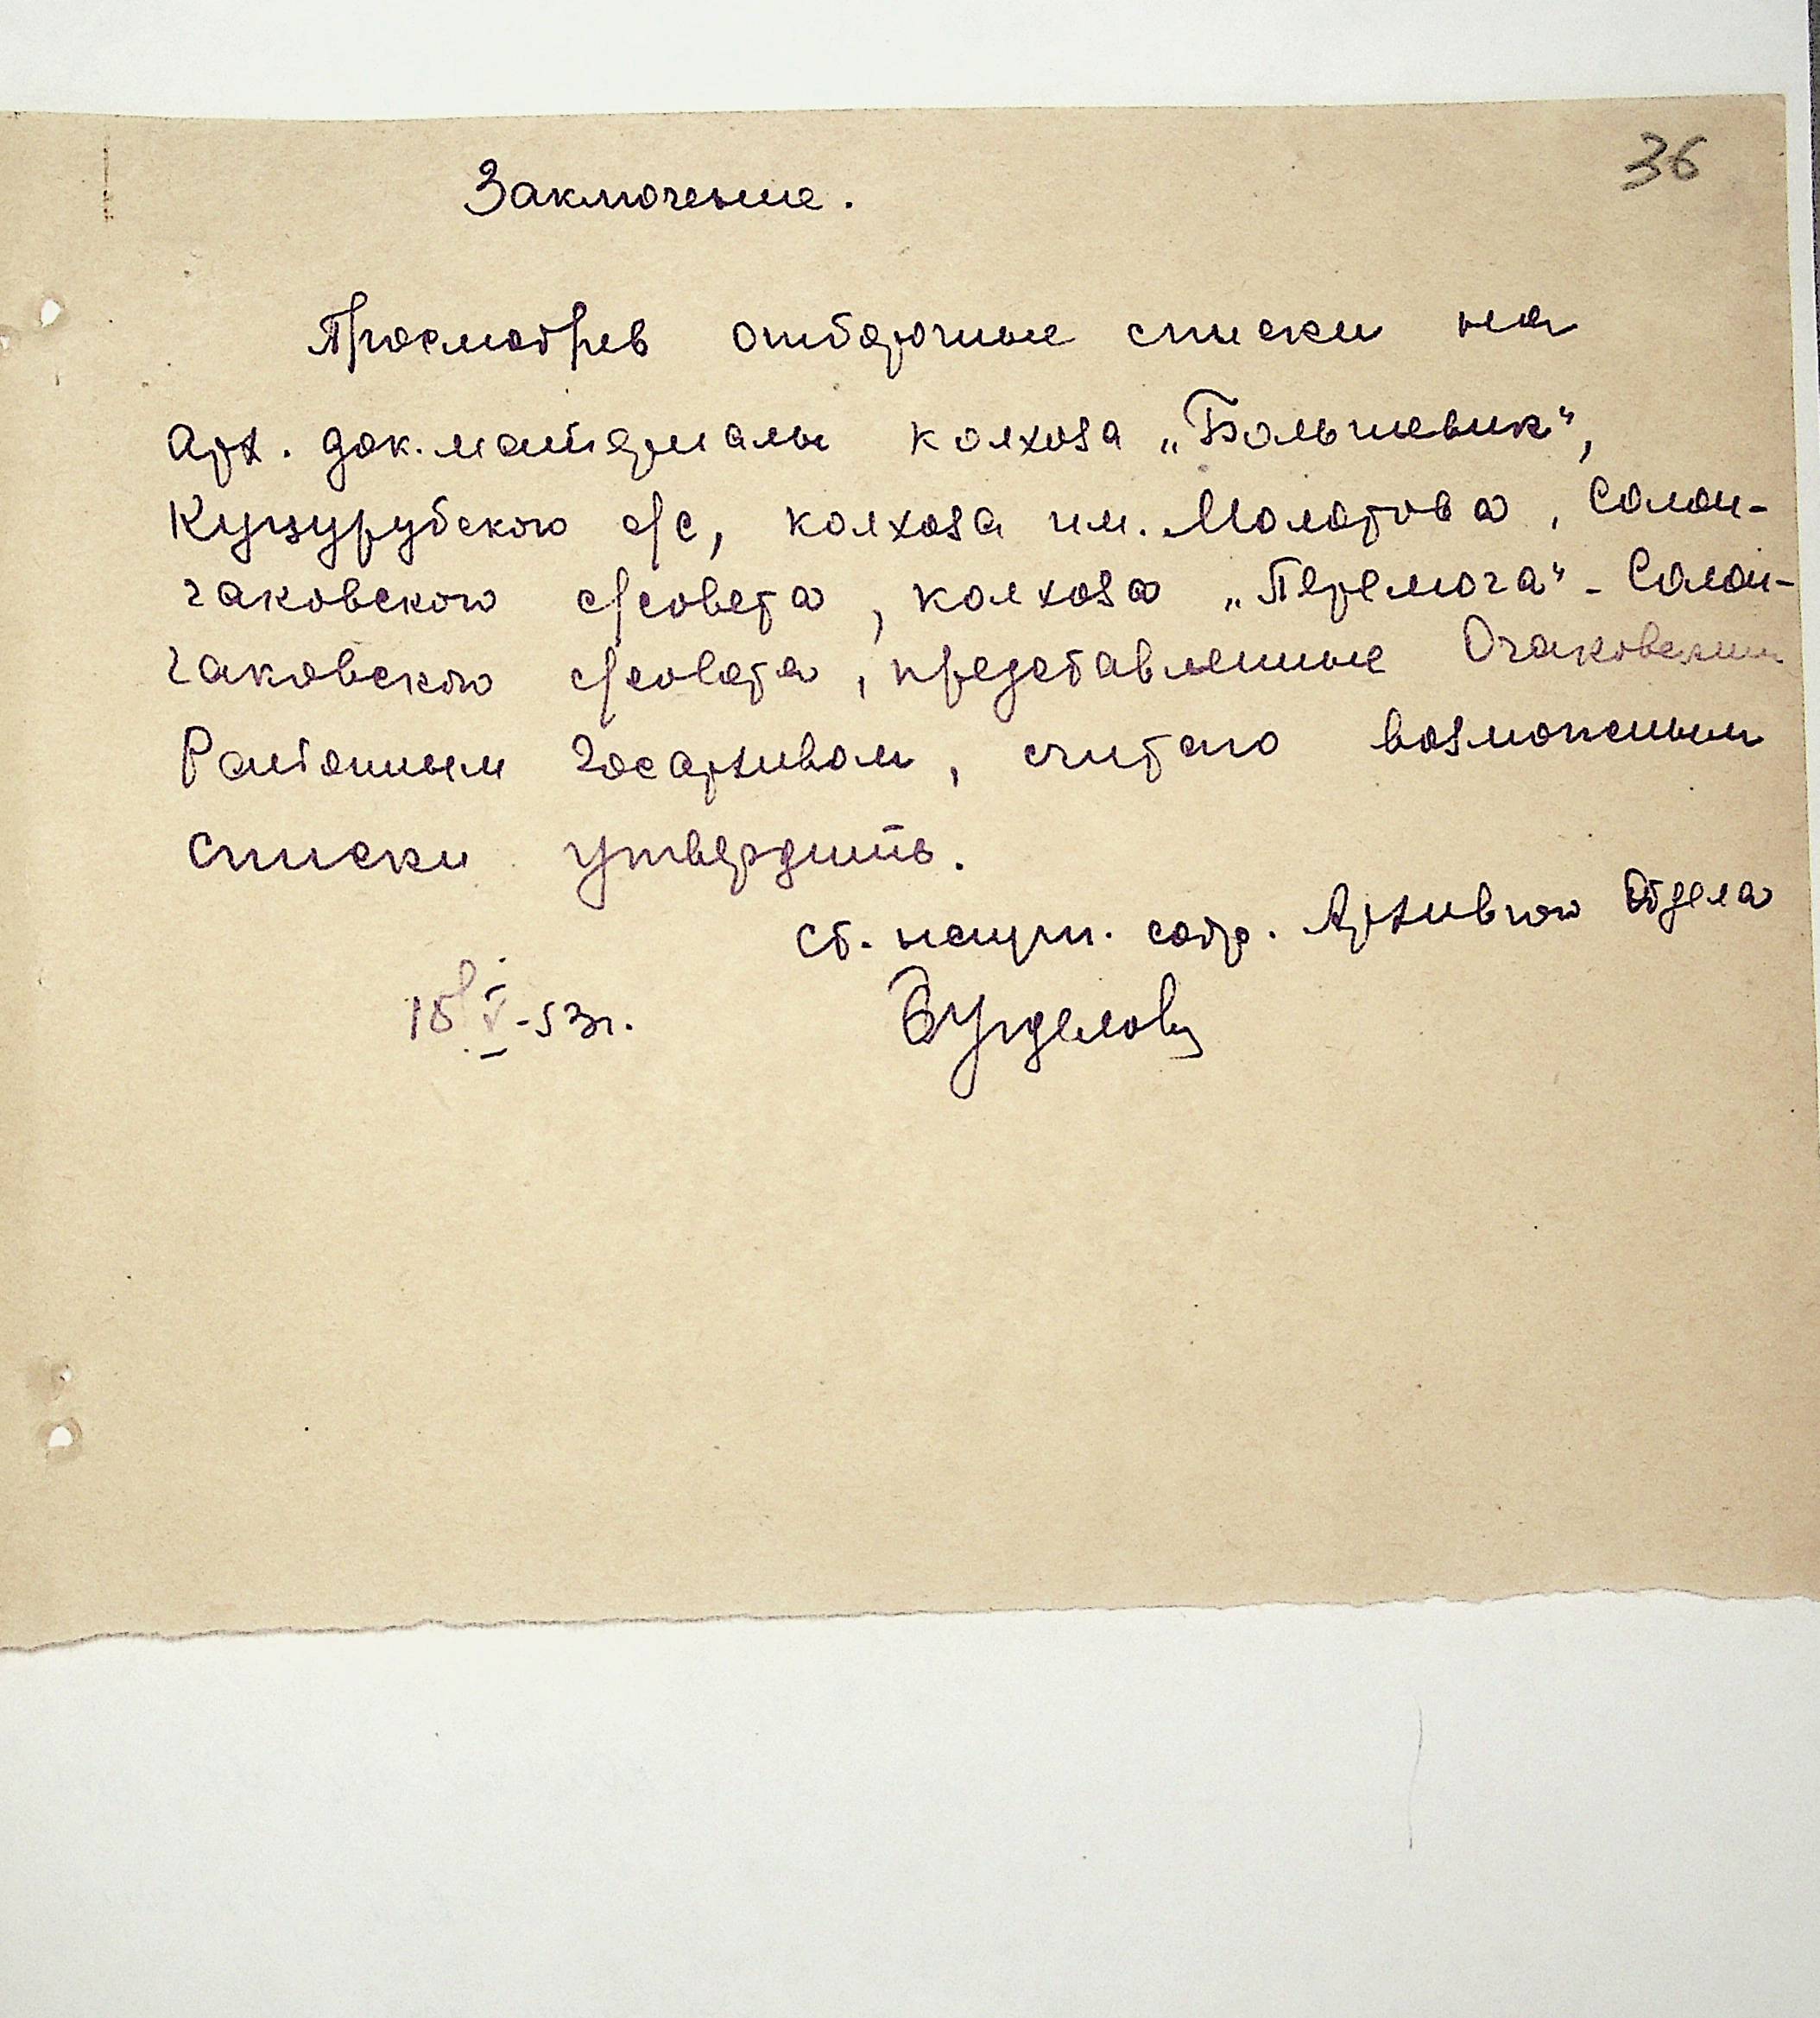 36
Заключение.
Просмотрев отборочные списки на
арх. док. материалы колхоза „Большевик",
Куцурубского с/с, колхоза им. Молотова, Солон-
чаковского с/совета, колхоза „Перемога" - Солон-
чаковского с/совета, представленные Очаковским
Районным Госархивом, считаю возможным
списки утвердить.
Ст. научн. сотр. Архивного Отдела
18/V-53г.